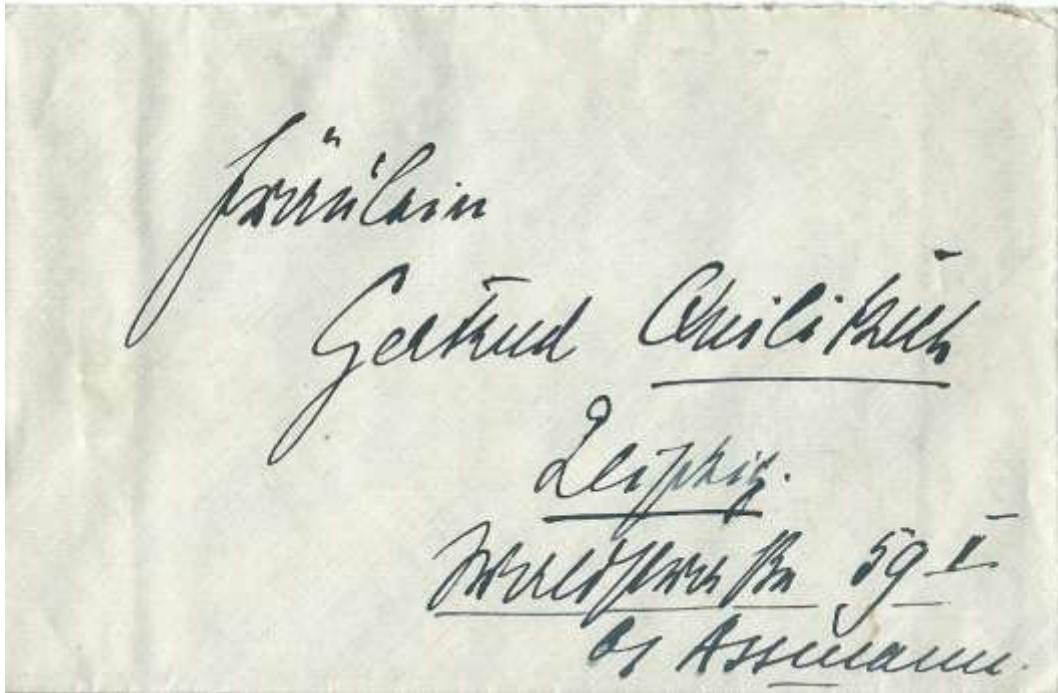 Fräulein
Gertrud
Leipzig.
Waldstraße 59 II
Assmann.